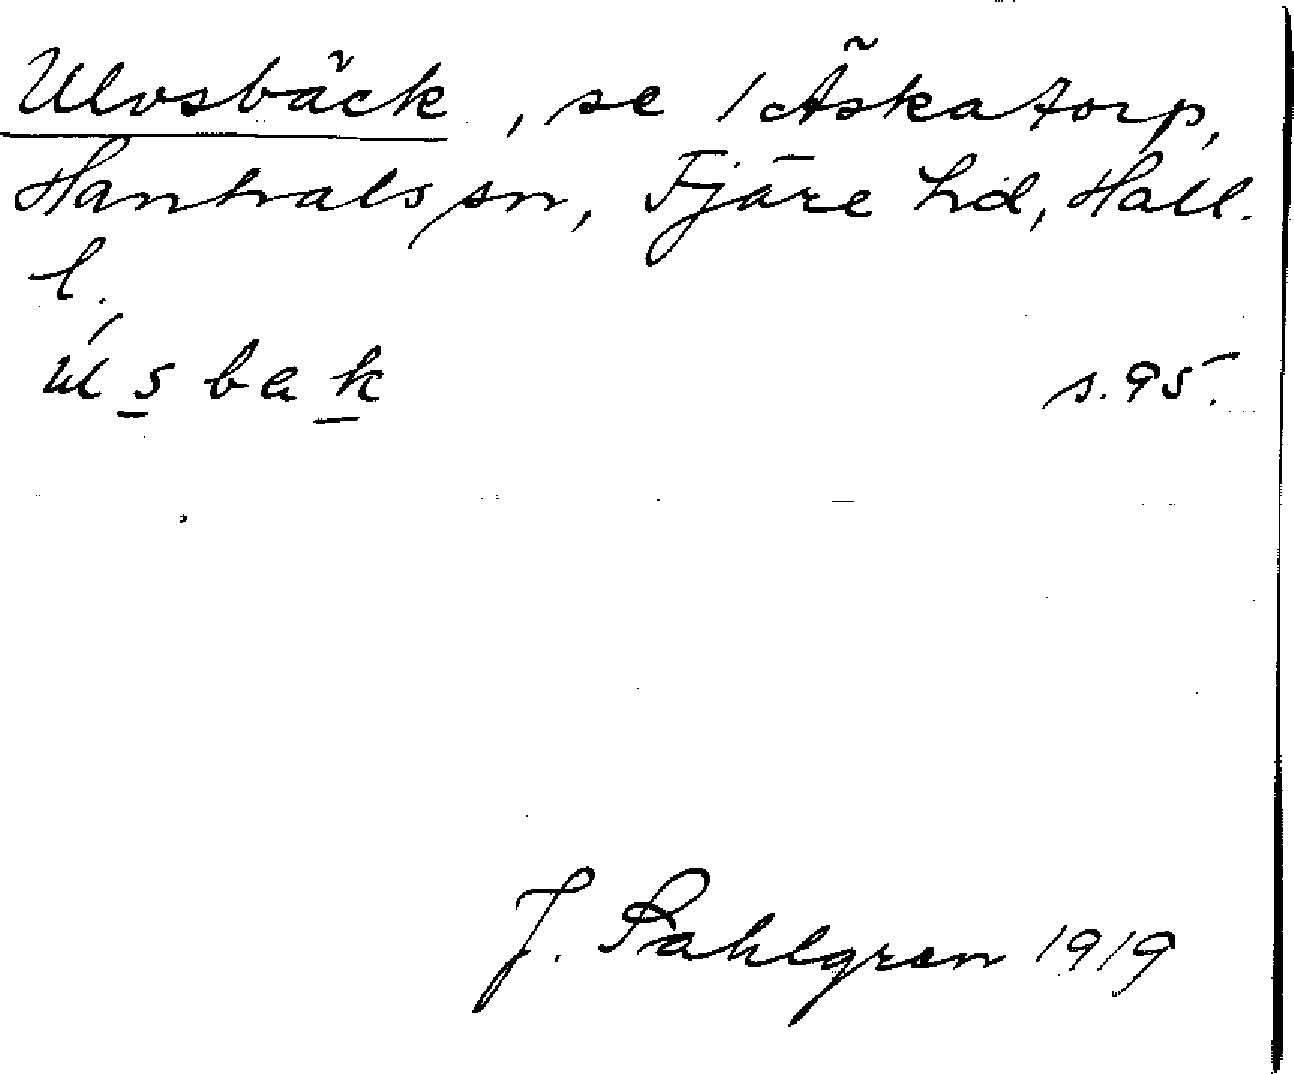 Ulvsbäck, se 1 Äskatorp,
Hanhals sn, Fjäre hd, Hall.
l.
úlsbak s. 95.
J. Sahlgren 1919